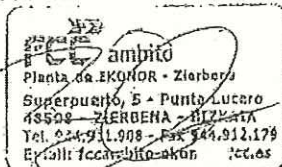 FCC ambito
Planta de EKONOR - Zierbena
Superpuerto, 5 - Punta Lucero
48508 - ZIERBENA - BIZKAIA
Tel. 944.911.908 - Fax 944.912.179
E-mail: fccambito-ekon fcc.es